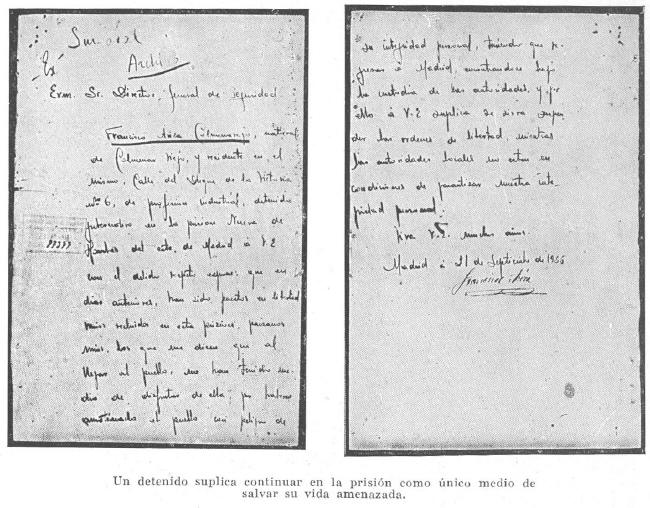 Archivo
Exmo. Sr. Director General de Seguridad.
Francisco Colmenarejo, natural
de Colmenar Viejo, y residente en el
mismo, Calle del Duque de la Victoria
nº 6, de profesion industrial, detenido
gubernativo en la prision Nueva de
Hombres del este, de Madrid á V.E
con el debido respeto expone: que en
dias anteriores, han sido puestos en libertad
varios recluidos en esta prision, paisanos
mios, los que me dicen que al
llegar al pueblo, no han tenido me-
dio de disfrutar de ella, por
el pueblo con peligro de
su integridad personal, teniendo que re-
gresar á Madrid, encontrandose bajo
la custodia de las autoridades, y por
ello á V.E suplica se sirva suspen-
der las ordenes de libertad, mientras
las autoridades locales no esten en
condiciones de garantizar nuestra inte-
gridad personal.
V.E. muchos años.
Madrid á 21 de Septiembre de 1936
Un detenido suplica continuar en la prisión como único medio de
salvar su vida amenazada.